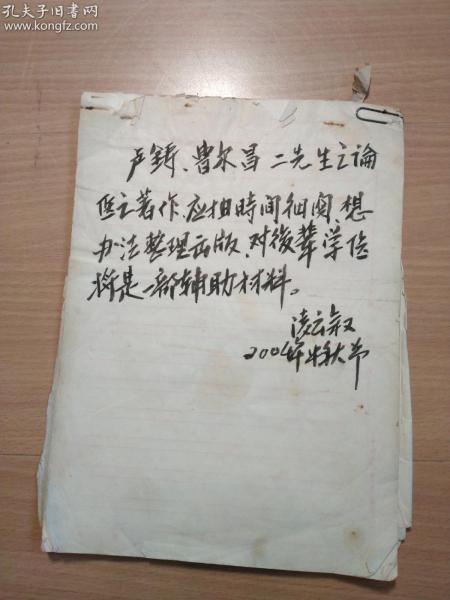 孔夫子旧书网
www.kongfz.com
严铸、曾尔昌二先生之論
医之著作,应抽時间細閲,想
办法整理出版,对後輩学医
将是一部辅助材料。
凌云
200年秋节